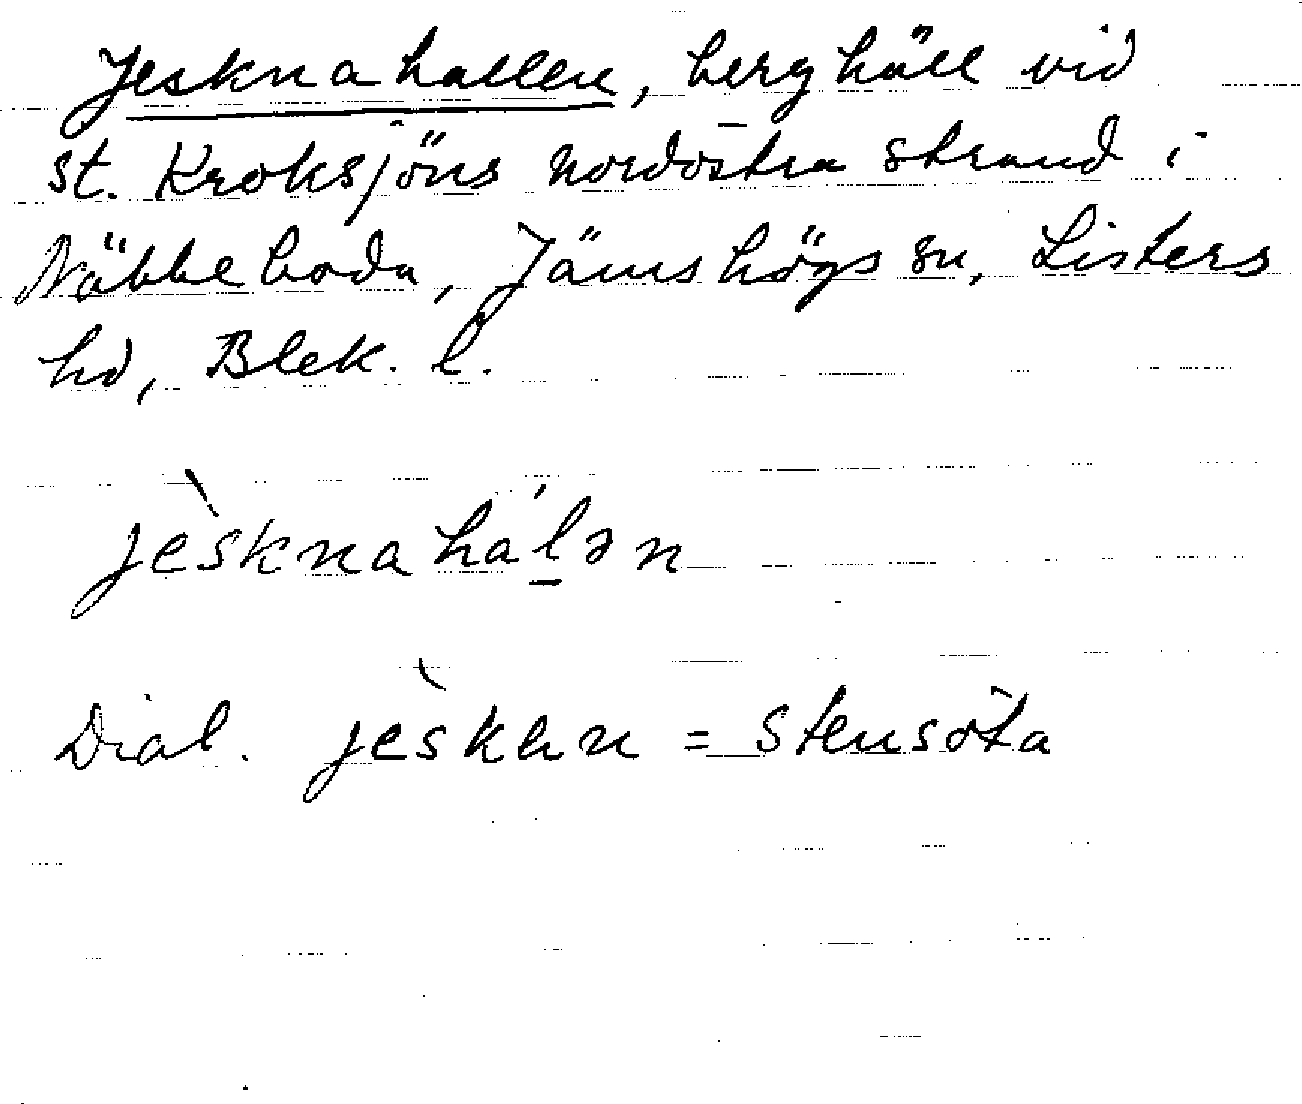 Jesknahallen, berghäll vid
st. Kroksjöns nordöstra strand i
Näbbeboda, Jämshögs sn, Listers
hd, Blek. l.
jèsknahál̲ən
Dial. jèsken = stensöta